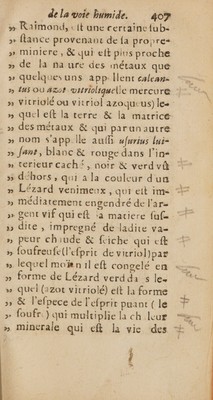 de la voie humide. 407
„ Raimond, est une certaine sub-
„ stance provenant de la propre
„ miniere, & qui est plus proche
„ de la nature des métaux que
„ quelques uns appellent calcan-
„ tus ou azot vitriolique(le mercure
„ vitriolé ou vitriol azoqueus) le-
„ quel est la terre & la matrice
„ des métaux & qui par un autre
„ nom s'appelle aussi usurius lui-
„ sant, blanc & rouge dans l'in-
„ terieur caché, noir & verd vû
„ dehors, qui a la couleur d'un
„ Lézard venimeux, qui est im-
„ médiatement engendré de l'ar-
„ gent vif qui est la matiere sus-
„ dite, impregné de ladite va-
„ peur chaude & seiche qui est
„ soufreuse(l'esprit de vitriol)par
„ lequel moien il est congelé en
„ forme de Lézard verd dans le-
„ quel (azot vitriolé) est la forme
„ & l'espece de l'esprit puant (le
„ soufre) qui multiplie la chaleur
„ minerale qui est la vie des